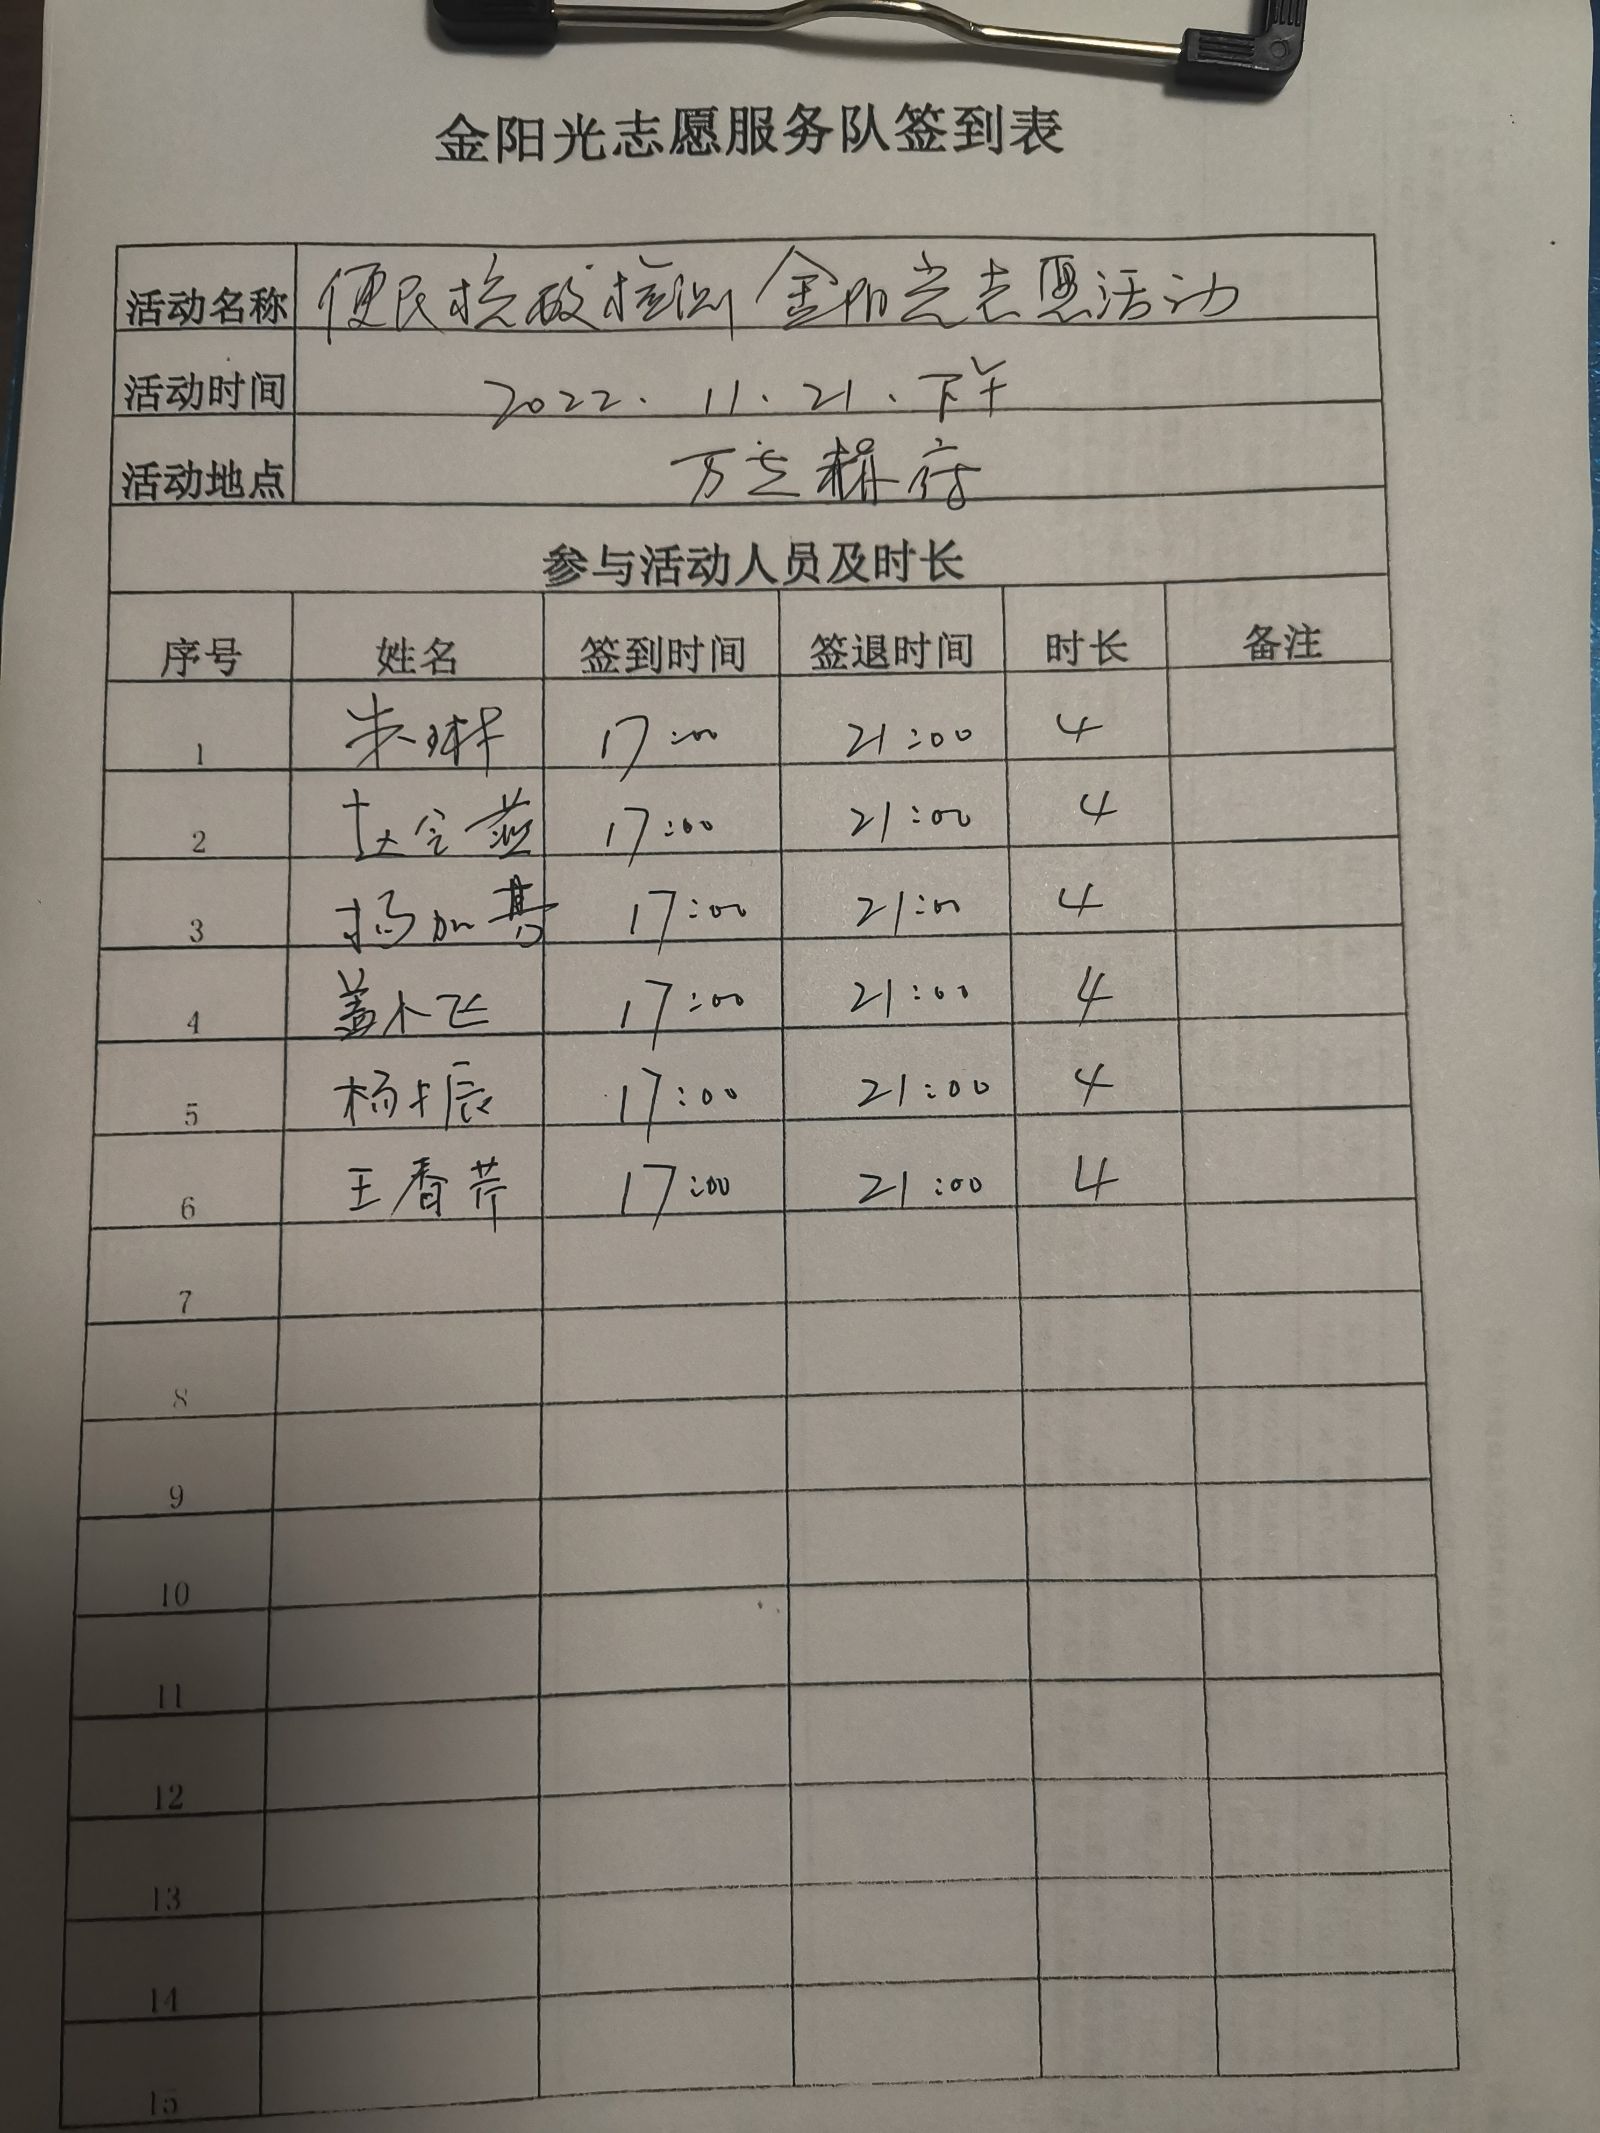 金阳光志愿服务队签到表
活动名称 便民核酸检测 金阳光志愿活动
活动时间 2022. 11. 21. 下午
活动地点 万志 府
参与活动人员及时长
序号 姓名 签到时间 签退时间 时长 备注
1 朱琳 17:00 21:00 4
2 17:00 21:00 4
3 杨加 17:00 21:00 4
4 盖小飞 17:00 21:00 4
5 杨振 17:00 21:00 4
6 王香芹 17:00 21:00 4
7
8
9
10
11
12
13
14
15